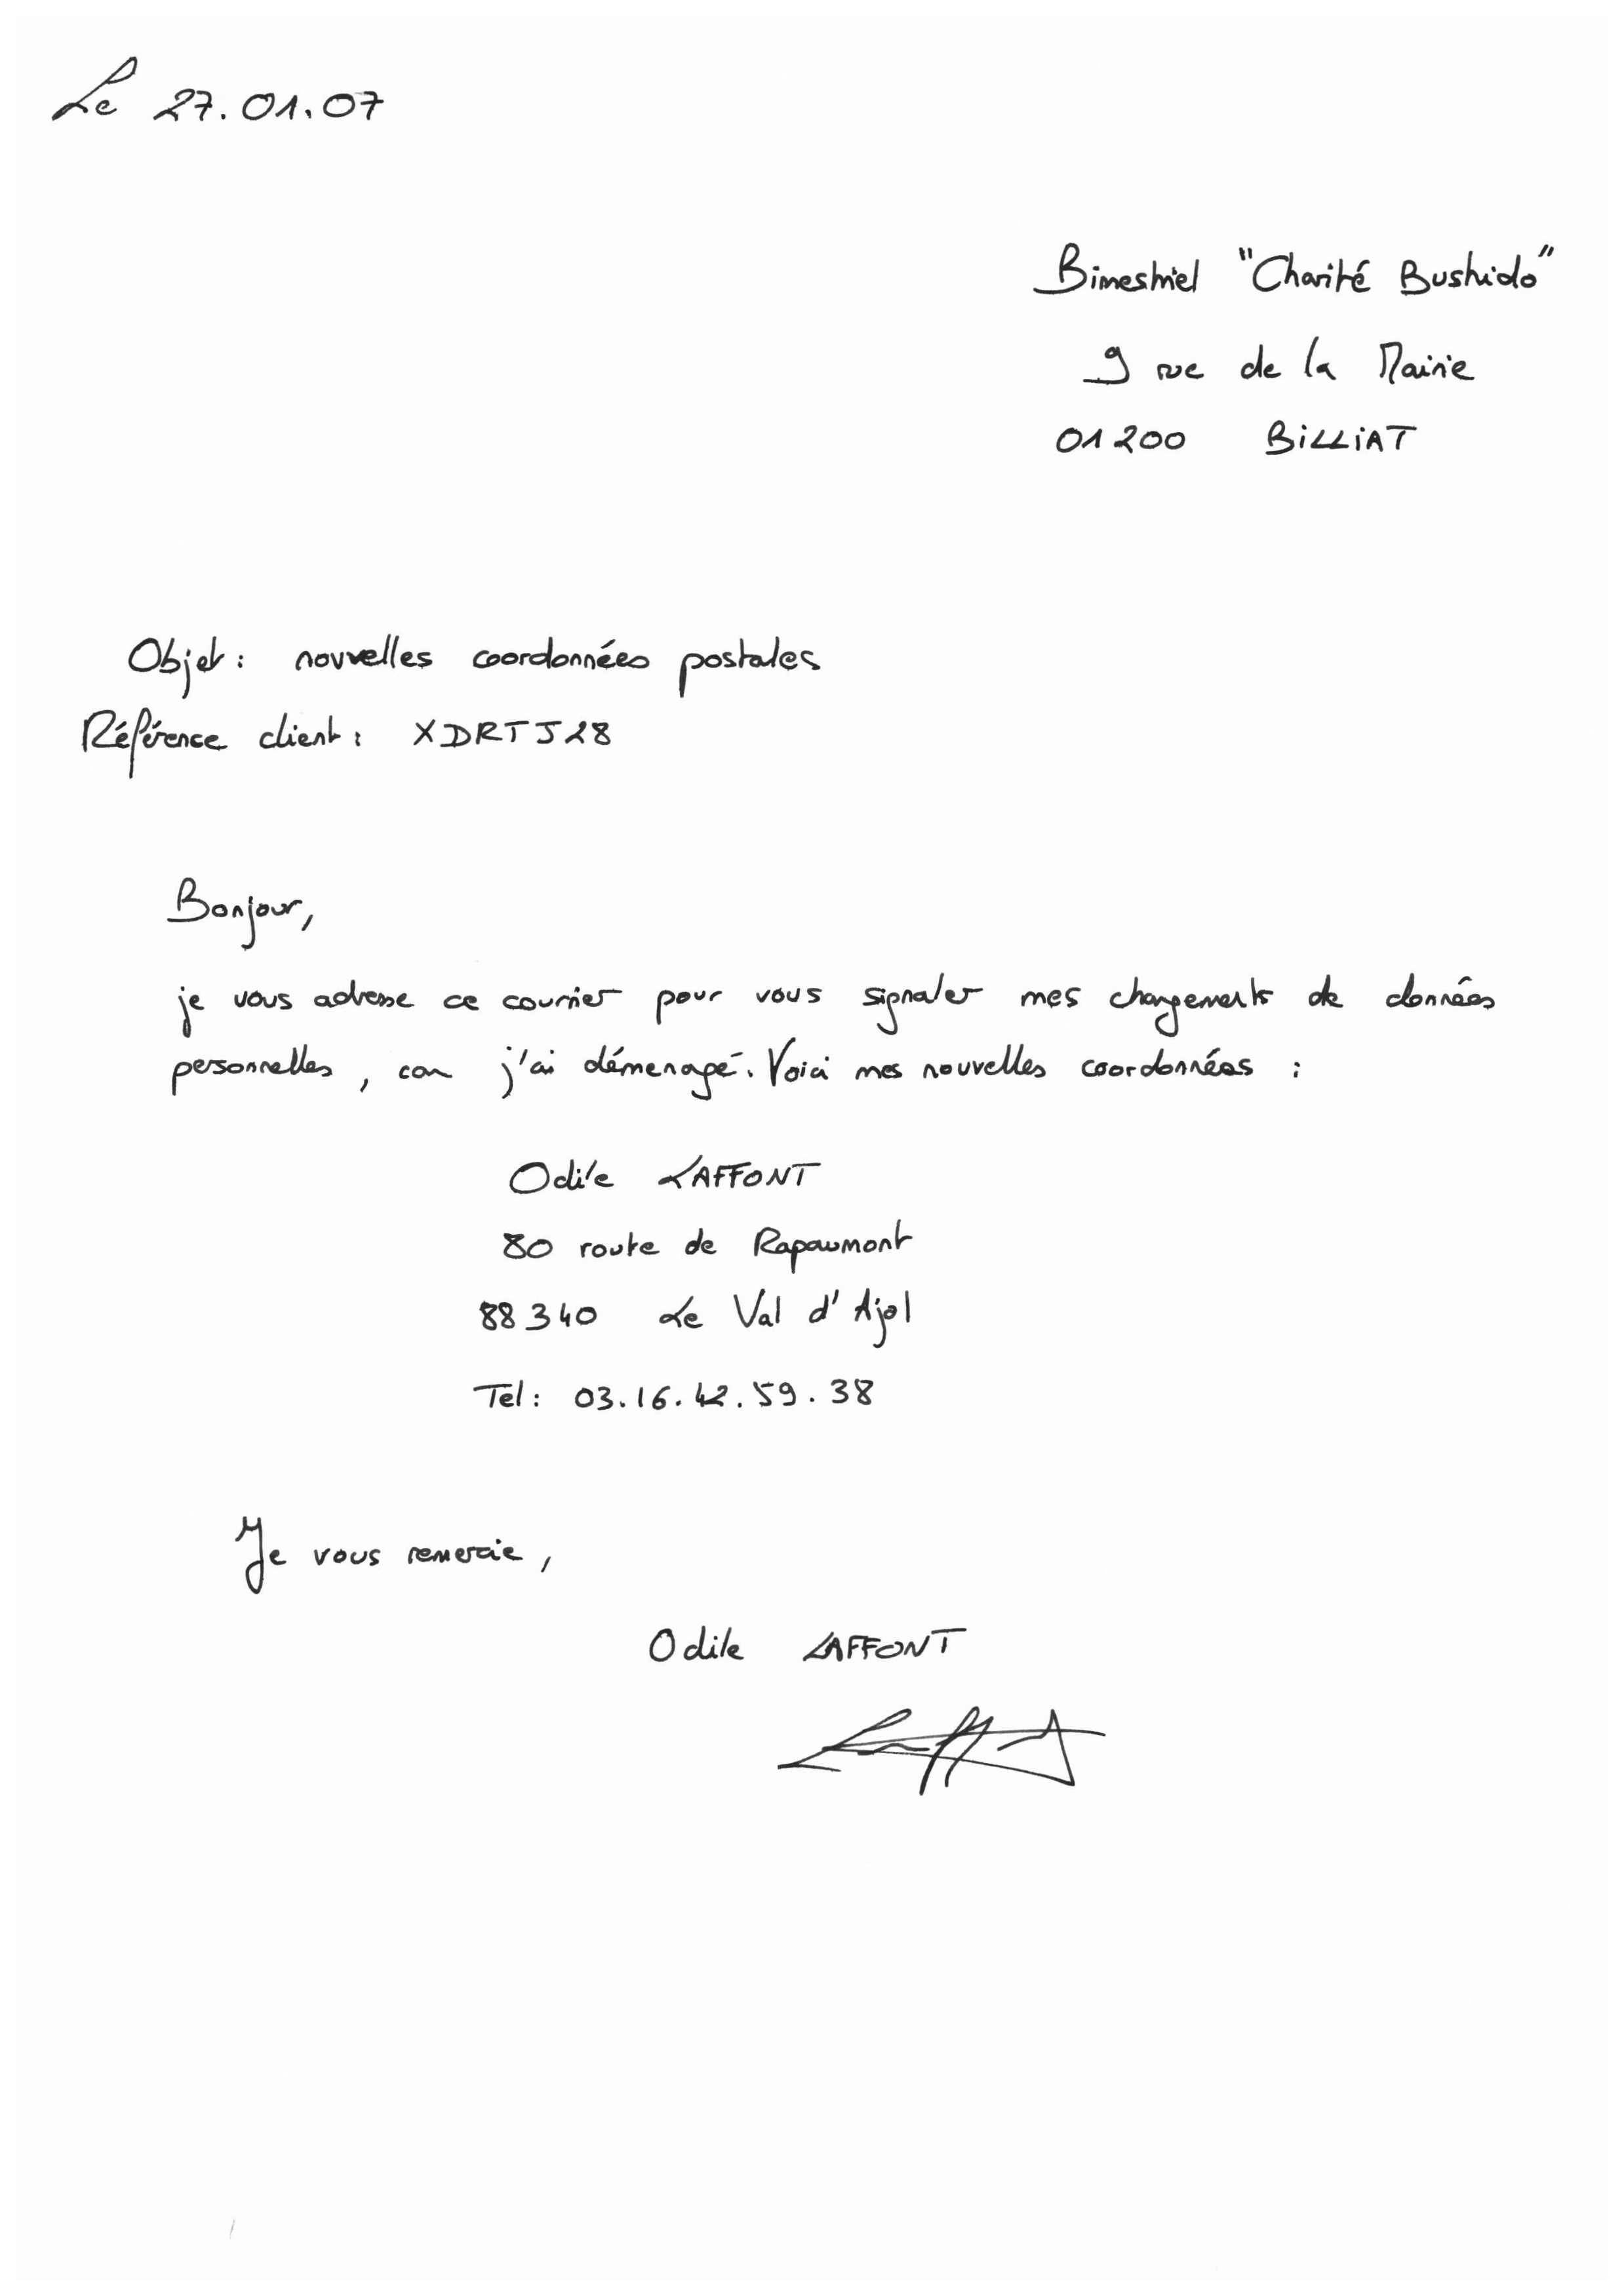 Le 27.01.07
Bimestriel "Charité Bushido"
9 rue de la Mairie
01200 BILLIAT
Objet : nouvelles coordonnées postales
Référence client : XDRTJ28
Bonjour,
je vous adresse ce courrier pour vous signaler mes changements de données
personnelles, car j'ai démenagé. Voici mes nouvelles coordonnées :
Odile LAFFONT
80 route de Rapaumont
88340 Le Val d'Ajol
Tel : 03.16.42.59.38
Je vous remercie,
Odile LAFFONT